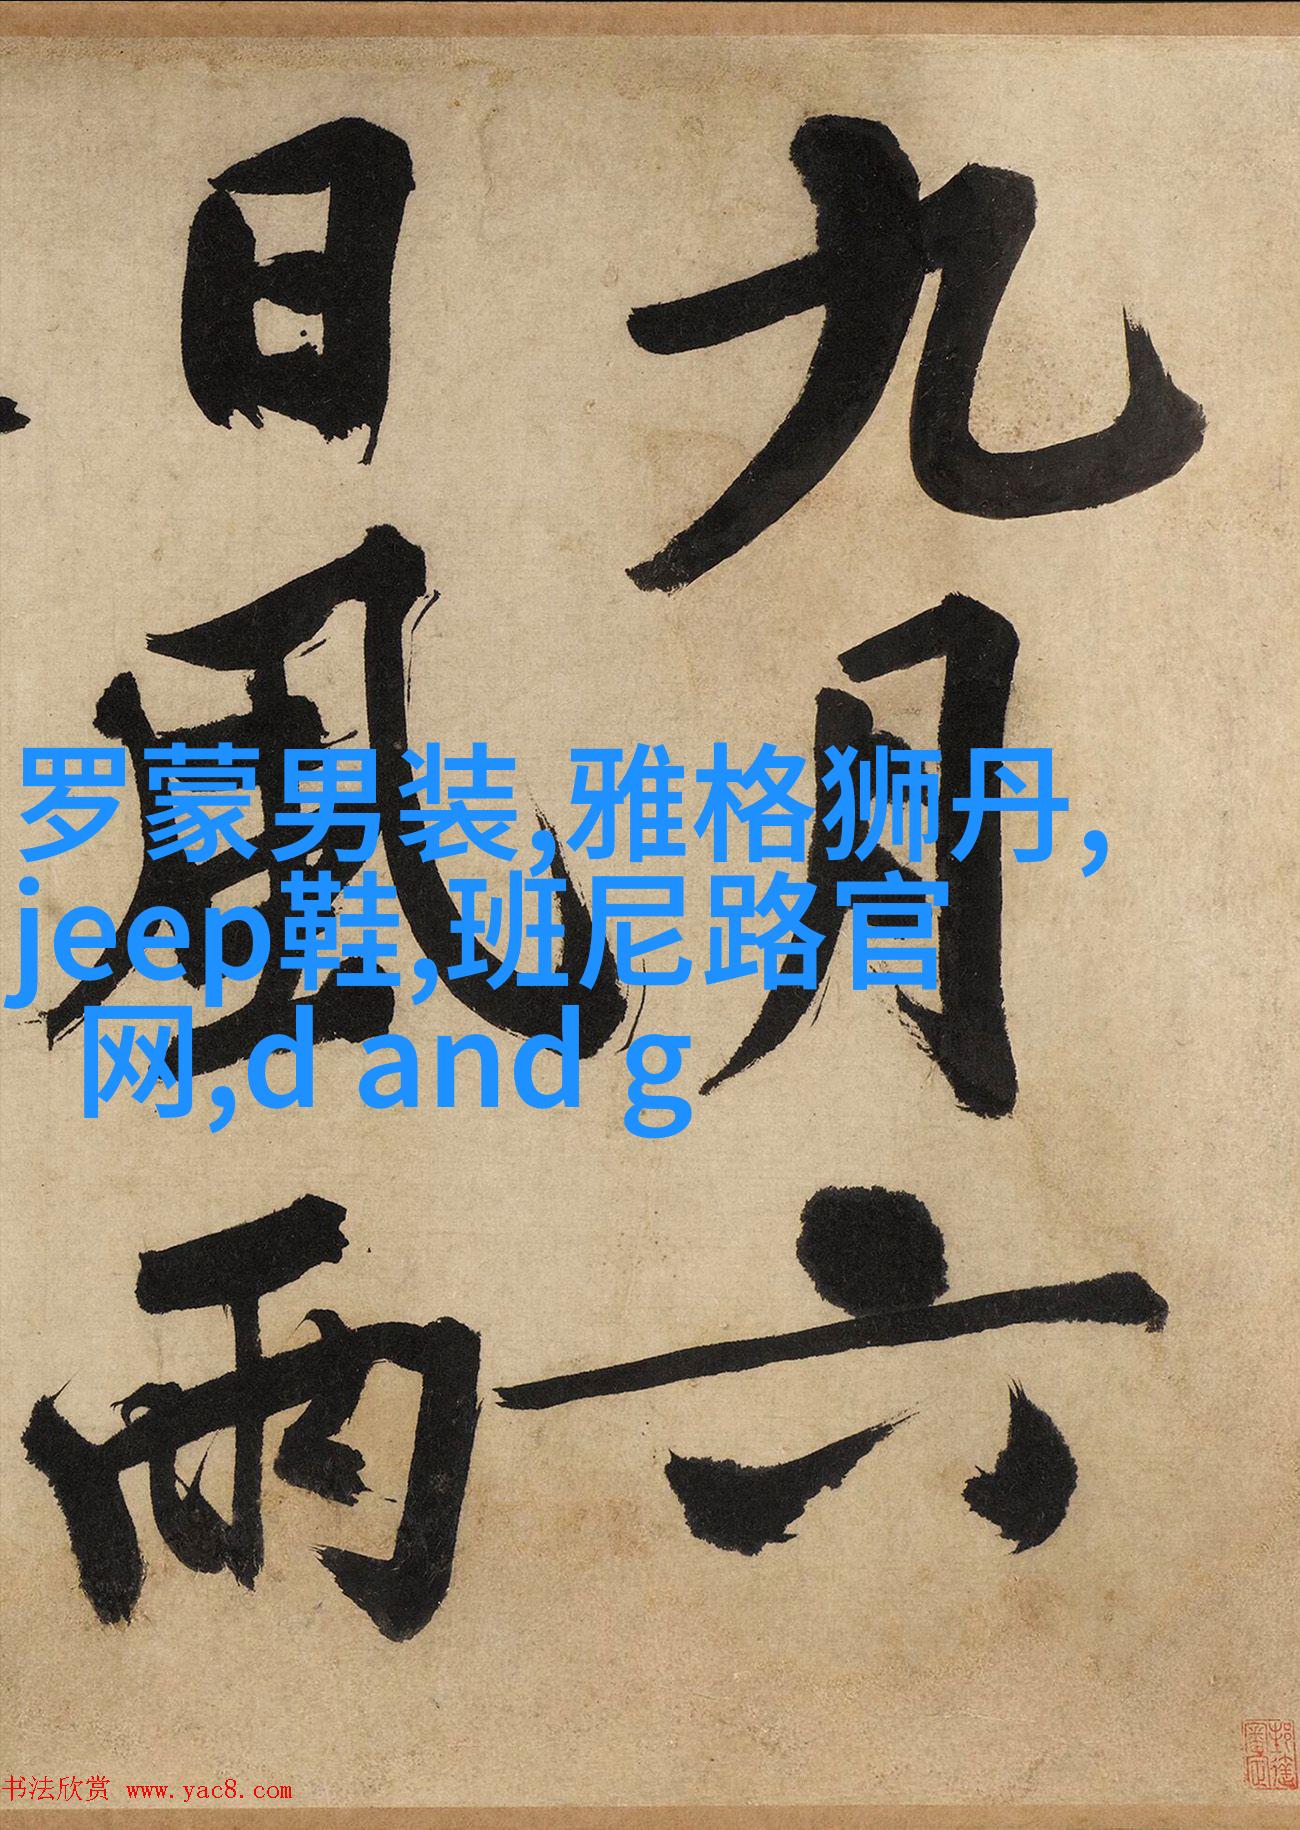 九月六
日風雨
罗蒙男装,雅格狮丹,
jeep鞋,班尼路官
网,d and g
书法欣赏 www.yac8.com